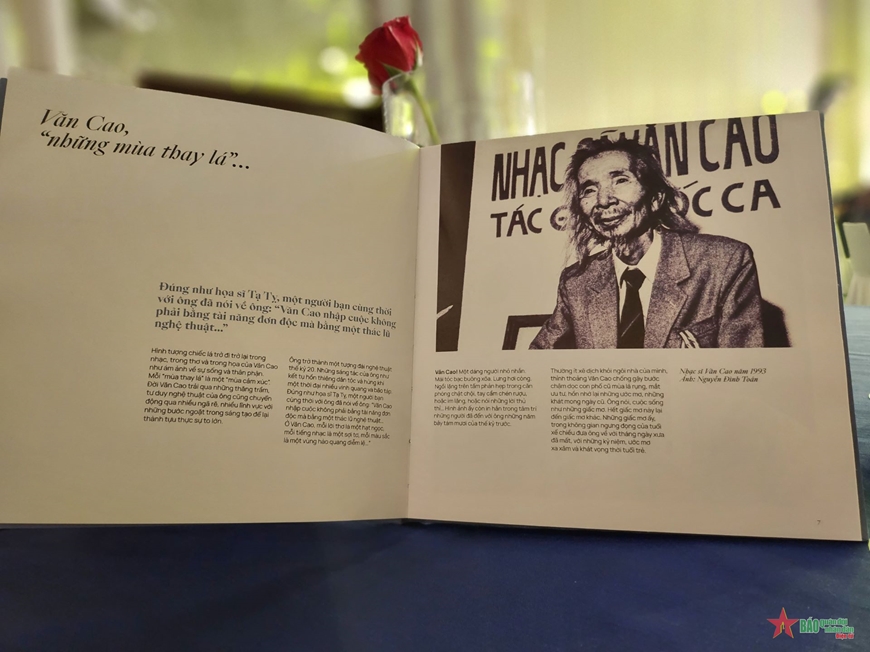 Văn Cao,
“những mùa thay lá”...
Đúng như họa sĩ Tạ Tỵ, một người bạn cùng thời
với ông đã nói về ông: “Văn Cao nhập cuộc không
phải bằng tài năng đơn độc mà bằng một thác lũ
nghệ thuật...”
Hình tượng chiếc lá trở đi trở lại trong
nhạc, trong thơ và trong họa của Văn Cao
như ám ảnh về sự sống và thân phận.
Mỗi “mùa thay lá” là một “mùa cảm xúc”.
Đời Văn Cao trải qua những thăng trầm,
tư duy nghệ thuật của ông cũng chuyển
động qua nhiều ngã rẽ, nhiều lĩnh vực với
những bước ngoặt trong sáng tạo để lại
thành tựu thực sự to lớn.
Ông trở thành một tượng đài nghệ thuật
thế kỷ 20. Những sáng tác của ông như
kết tụ hồn thiêng dân tộc và hứng khí
một thời đại nhiều vinh quang và bão táp.
Đúng như họa sĩ Tạ Tỵ, một người bạn
cùng thời với ông đã nói về ông: “Văn Cao
nhập cuộc không phải bằng tài năng đơn
độc mà bằng một thác lũ nghệ thuật...
Ở Văn Cao, mỗi lời thơ là một hạt ngọc,
mỗi tiếng nhạc là một sợi tơ, mỗi màu sắc
là một vùng hào quang diễm lệ...”
NHẠC VĂN CAO
TÁC ỐC CA
Văn Cao! Một dáng người nhỏ nhắn.
Mái tóc bạc buông xõa. Lưng hơi còng.
Ngồi lặng trên tấm phản hẹp trong căn
phòng chật chội, tay cầm chén rượu,
hoặc im lặng, hoặc nói những lời thủ
thỉ... Hình ảnh ấy còn in hằn trong tâm trí
những người đã đến với ông những năm
bảy tám mươi của thế kỷ trước.
Thường ít xê dịch khỏi ngôi nhà của mình,
thỉnh thoảng Văn Cao chống gậy bước
chậm dọc con phố cũ mùa lá rụng, mắt
ưu tư, hồn nhớ lại những ước mơ, những
khát mong ngày cũ. Ông nói, cuộc sống
như những giấc mơ. Hết giấc mơ này lại
đến giấc mơ khác. Những giấc mơ ấy,
trong không gian ngưng đọng của tuổi
xế chiều đưa ông về với tháng ngày xưa
đã mất, với những kỷ niệm, ước mơ
xa xăm và khát vọng thời tuổi trẻ.
Nhạc sĩ Văn Cao năm 1993
Ảnh: Nguyễn Đình Toán
7
BÁO quân đội
nhân dân
điện tử